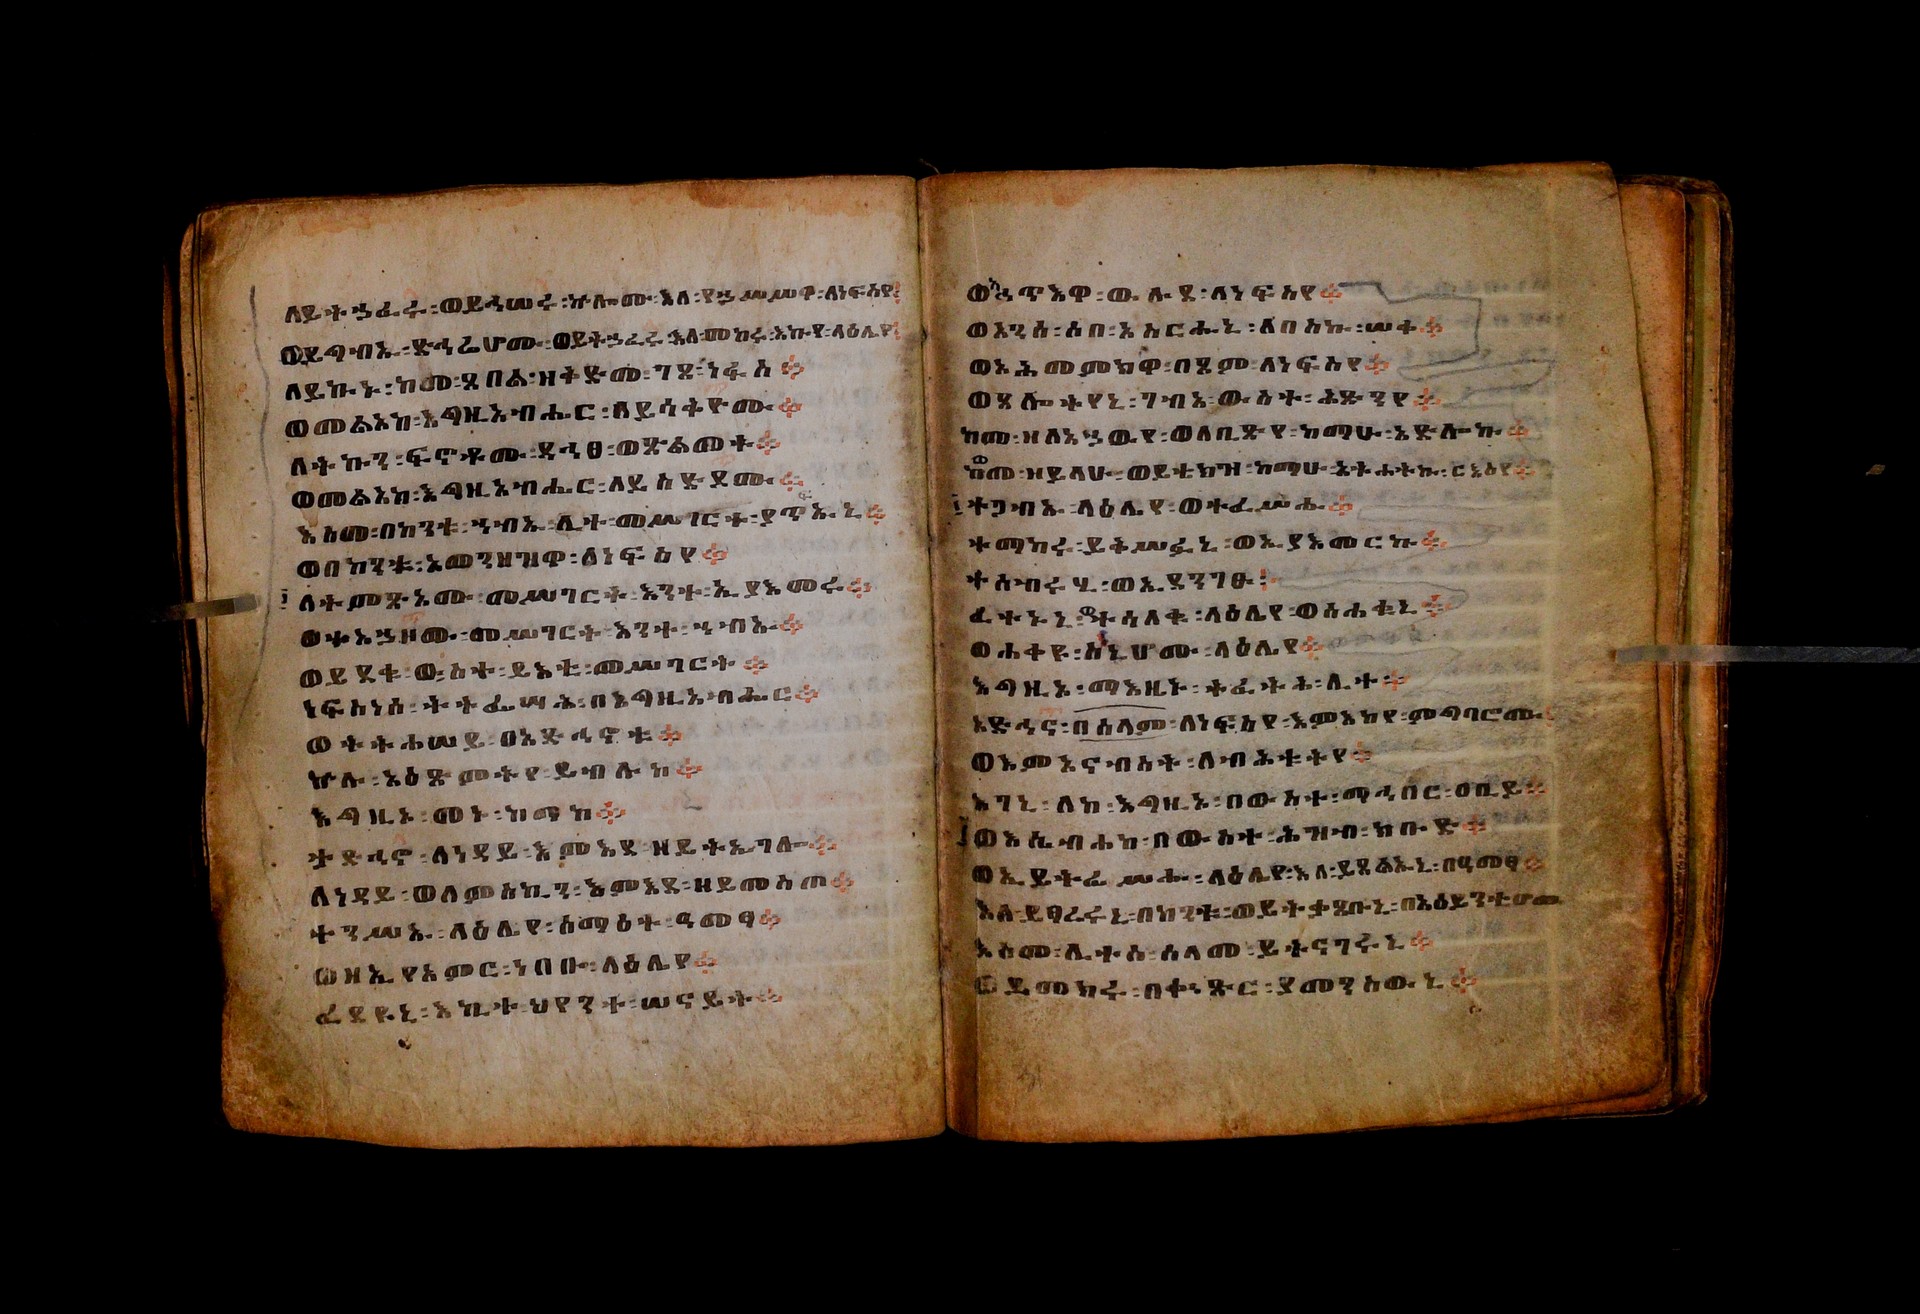 ለይትኃፈሩ፡ወይኅሠሩ፡ኵሎሙ፡እለ፡የኃሥሥዋ፡ለነፍስየ፤
ወይግብኡ፡ድኅሬሆሙ፡ወይትኃፈሩ፡እለ፡መከሩ፡እኩየ፡ላዕሌየ፤
ለይኩኑ፡ከመ፡ጸበል፡ዘቅድመ፡ገጸ፡ነፋስ።
ወመልአከ፡እግዚአብሔር፡ለይሳቅዮሙ።
ለትኩን፡ፍኖቶሙ፡ዳኅፀ፡ወጽልመተ።
ወመልአከ፡እግዚአብሔር፡ለይስድዶሙ።
እስመ፡በከንቱ፡ኀብኡ፡ሊተ፡መሥገርተ፡ያጥፍኡኒ።
ወበከንቱ፡አመንዘዝዋ፡ለነፍስየ።
ለትምጽኦሙ፡መሥገርት፡እንተ፡ኢያእመሩ።
ወተአኃዞሙ፡መሥገርት፡እንተ፡ኀብኡ።
ወይደቁ፡ውስተ፡ይእቲ፡መሥገርት።
ነፍስየሰ፡ትትፌሣሕ፡በእግዚአብሔር።
ወትትሐሠይ፡በአድኅኖቱ።
ኵሉ፡አዕጽምትየ፡ይብሉከ።
እግዚኦ፡መኑ፡ከማከ።
ታድኅኖ፡ለነዳይ፡እምእደ፡ዘይትኄገሎ።
ለነዳይ፡ወለምስኪን፡እምእደ፡ዘይመስጦ።
ተንሥኡ፡ላዕሌየ፡ሰማዕተ፡ዓመፃ።
ወዘኢየአምር፡ነበቡ፡ላዕሌየ።
ፈደዩኒ፡እኪተ፡ህየንተ፡ሠናይት።
ወኣኅጥእዋ፡ውሉደ፡ለነፍስየ።
ወአንሰ፡ሶበ፡አስርሑኒ፡ለበስኩ፡ሠቀ።
ወአሕመምክዋ፡በጾም፡ለነፍስየ።
ወጸሎትየኒ፡ገብአ፡ውስተ፡ሕፅንየ።
ከመ፡ዘለእኁየ፡ወለቢጽየ፡ከማሁ፡አድሎኩ።
ወከመ፡ዘይላሁ፡ወይቴክዝ፡ከማሁ፡አትሐትኩ፡ርእስየ።
ተጋብኡ፡ላዕሌየ፡ወተፈሥሑ።
ተማከሩ፡ይቅሥፉኒ፡ወኢያእመርኩ።
ተሰብሩሂ፡ወኢደንገፁ፤
ፈተኑኒ፡ወተሳለቁ፡ላዕሌየ፡ወሰሐቁኒ።
ወሐቀዩ፡ስነኒሆሙ፡ላዕሌየ።
እግዚኦ፡ማእዜኑ፡ትፈትሕ፡ሊተ።
አድኅና፡በሰላም፡ለነፍስየ፡እምእከየ፡ምግባሮሙ።
ወእምአናብስት፡ለብሕቱትየ።
እገኒ፡ለከ፡እግዚኦ፡በውስተ፡ማኅበር፡ዐቢይ።
ወእሴብሐከ፡በውስተ፡ሕዝብ፡ክቡድ።
ወኢይትፈሥሑ፡ላዕሌየ፡እለ፡ይጸልኡኒ፡በዓመፃ።
እለ፡ይፃረሩኒ፡በከንቱ፡ወይትቃጸቡኒ፡በአዕይንቲሆሙ
እስመ፡ሊተሰ፡ሰላመ፡ይትናገሩኒ።
ወይመክሩ፡በቍጽር፡ያመንስዉኒ።